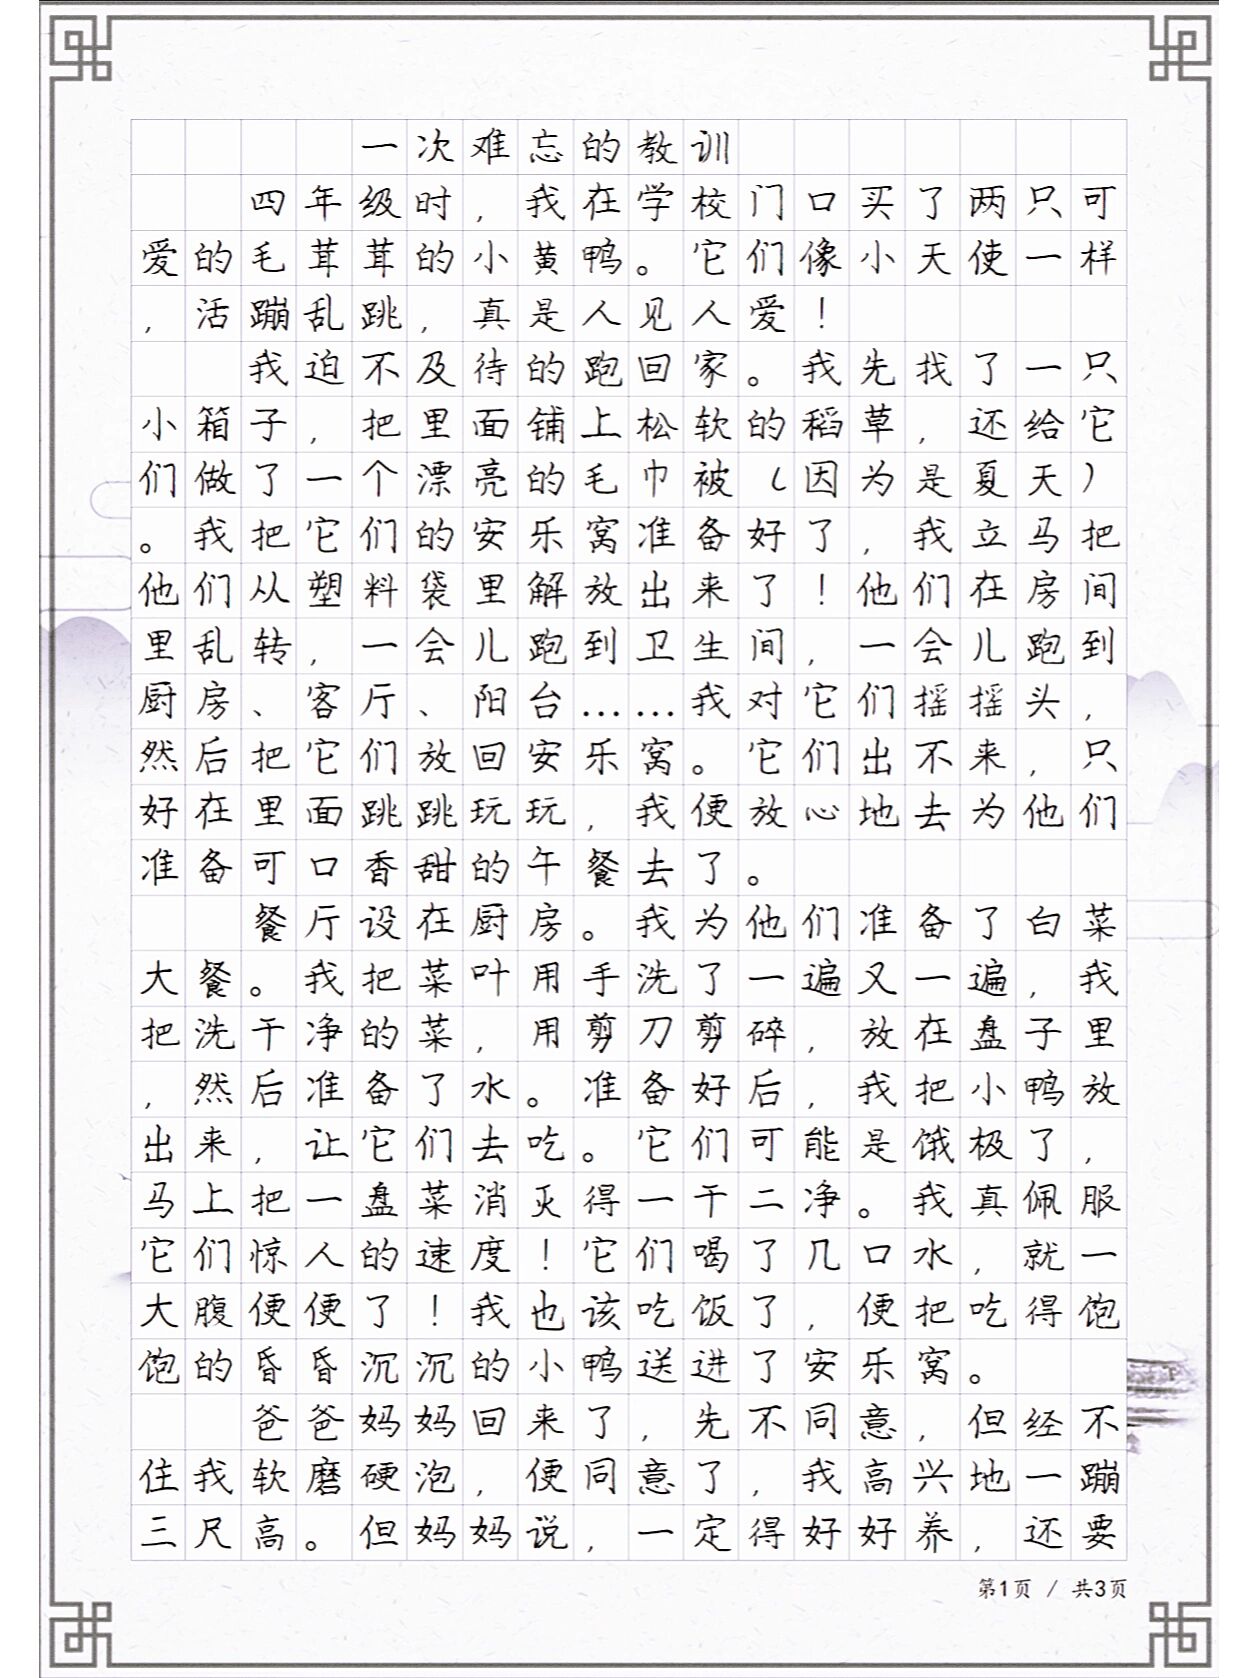 一次难忘的教训
四年级时，我在学校门口买了两只可
爱的毛茸茸的小黄鸭。它们像小天使一样
，活蹦乱跳，真是人见人爱！
我迫不及待的跑回家。我先找了一只
小箱子，把里面铺上松软的稻草，还给它
们做了一个漂亮的毛巾被（因为是夏天）
。我把它们的安乐窝准备好了，我立马把
他们从塑料袋里解放出来了！他们在房间
里乱转，一会儿跑到卫生间，一会儿跑到
厨房、客厅、阳台……我对它们摇摇头，
然后把它们放回安乐窝。它们出不来，只
好在里面跳跳玩玩，我便放心地去为他们
准备可口香甜的午餐去了。
餐厅设在厨房。我为他们准备了白菜
大餐。我把菜叶用手洗了一遍又一遍，我
把洗干净的菜，用剪刀剪碎，放在盘子里
，然后准备了水。准备好后，我把小鸭放
出来，让它们去吃。它们可能是饿极了，
马上把一盘菜消灭得一干二净。我真佩服
它们惊人的速度！它们喝了几口水，就一
大腹便便了！我也该吃饭了，便把吃得饱
饱的昏昏沉沉的小鸭送进了安乐窝。
爸爸妈妈回来了，先不同意，但经不
住我软磨硬泡，便同意了，我高兴地一蹦
三尺高。但妈妈说，一定得好好养，还要
第1页 / 共3页